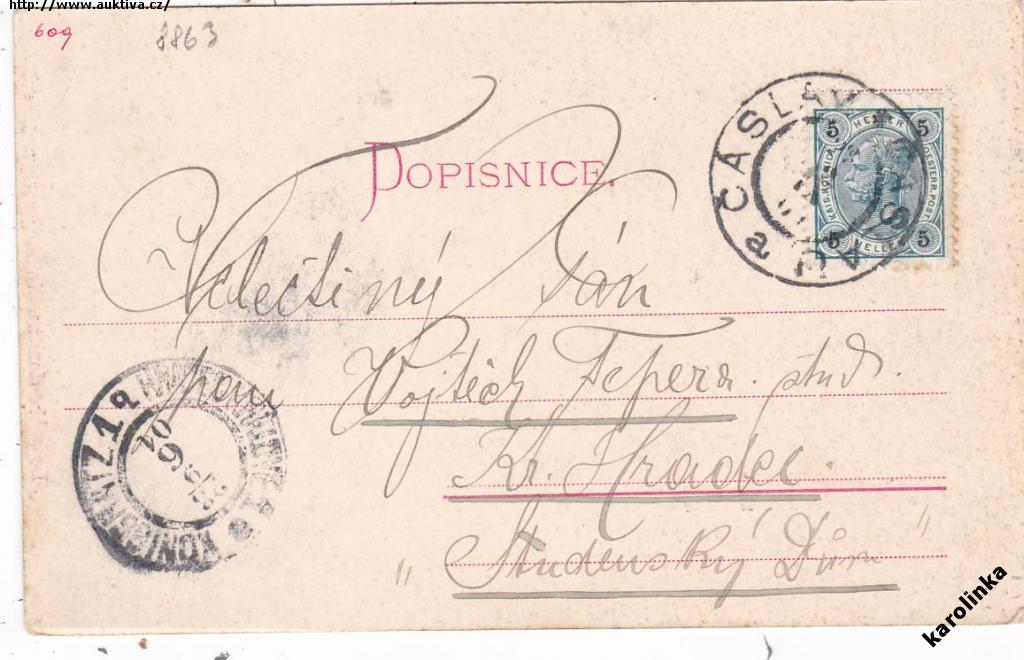 http://www.auktiva.cz/
609
8863
DOPISNICE.
ČÁSLAV ČASLAU a
5 HELLER 5
KAIS. KÖNIGL. OESTERR. POST.
5 HELLER 5
Velečtiný Pán
pan Vojtěch Tepera. stud.
Kr. Hradec
„Studenský Dům"
KÖNIGGRÄTZ 1 q
04
karolinka